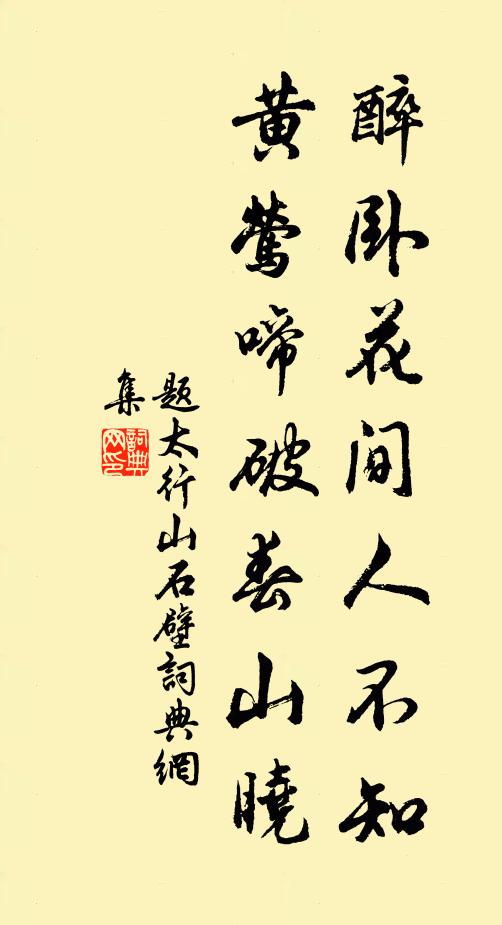 醉卧花间人不知
黄莺啼破春山曉
题太行山石壁詞典網
集
詞典
网印